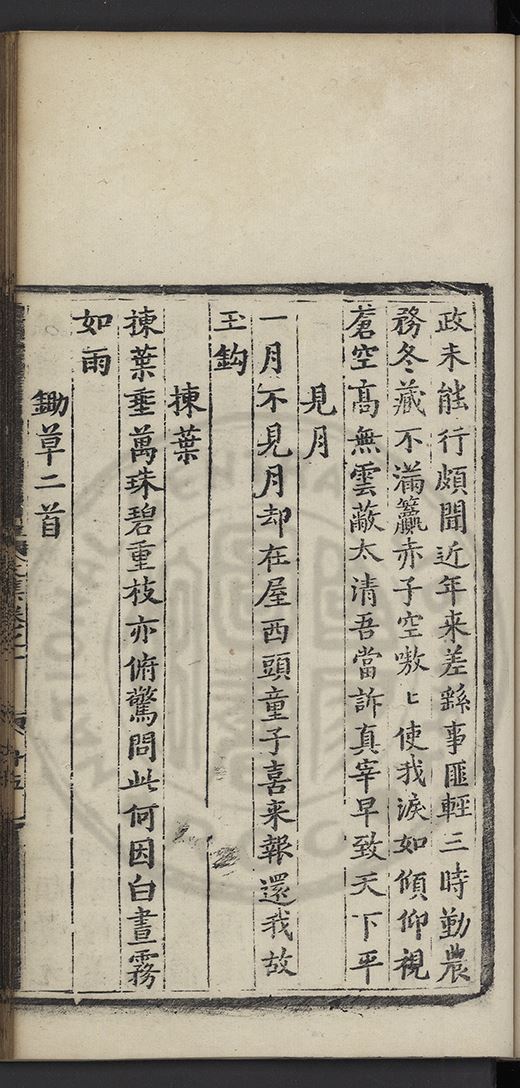 政未能行頗聞近年来差繇事匪輕三時勤農
務冬藏不滿籝赤子空嗷〻使我淚如傾仰視
蒼空髙無雲蔽太清吾當訴真宰早致天下平
見月
一月不見月却在屋西頭童子喜来報還我故
玉鈎
揀葉
揀葉垂萬珠碧重枝亦俯驚問此何因白晝霧
如雨
鋤草二首